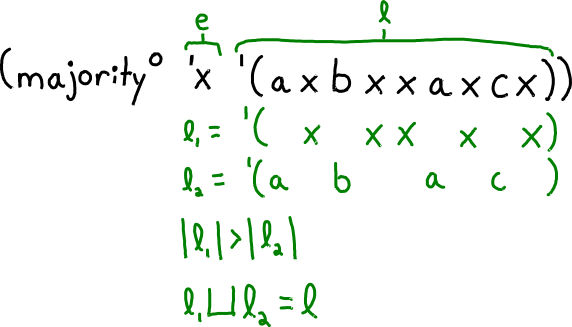 e l
(majorityᵒ 'x '(a x b x x a x c x))
l₁ = '( x x x x x)
l₂ = '(a b a c )
|l₁| > |l₂|
l₁ ⊔ l₂ = l